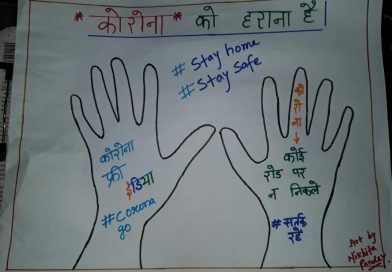 *कोरोना* को हराना है।
# Stay home
# Stay Safe
कोरोना
फ्री
इंडिया
# Corona
go
को
रो
ना
कोई
रोड पर
न निकले
# सतर्क
रहे
Art by
Nikhita
Pandey